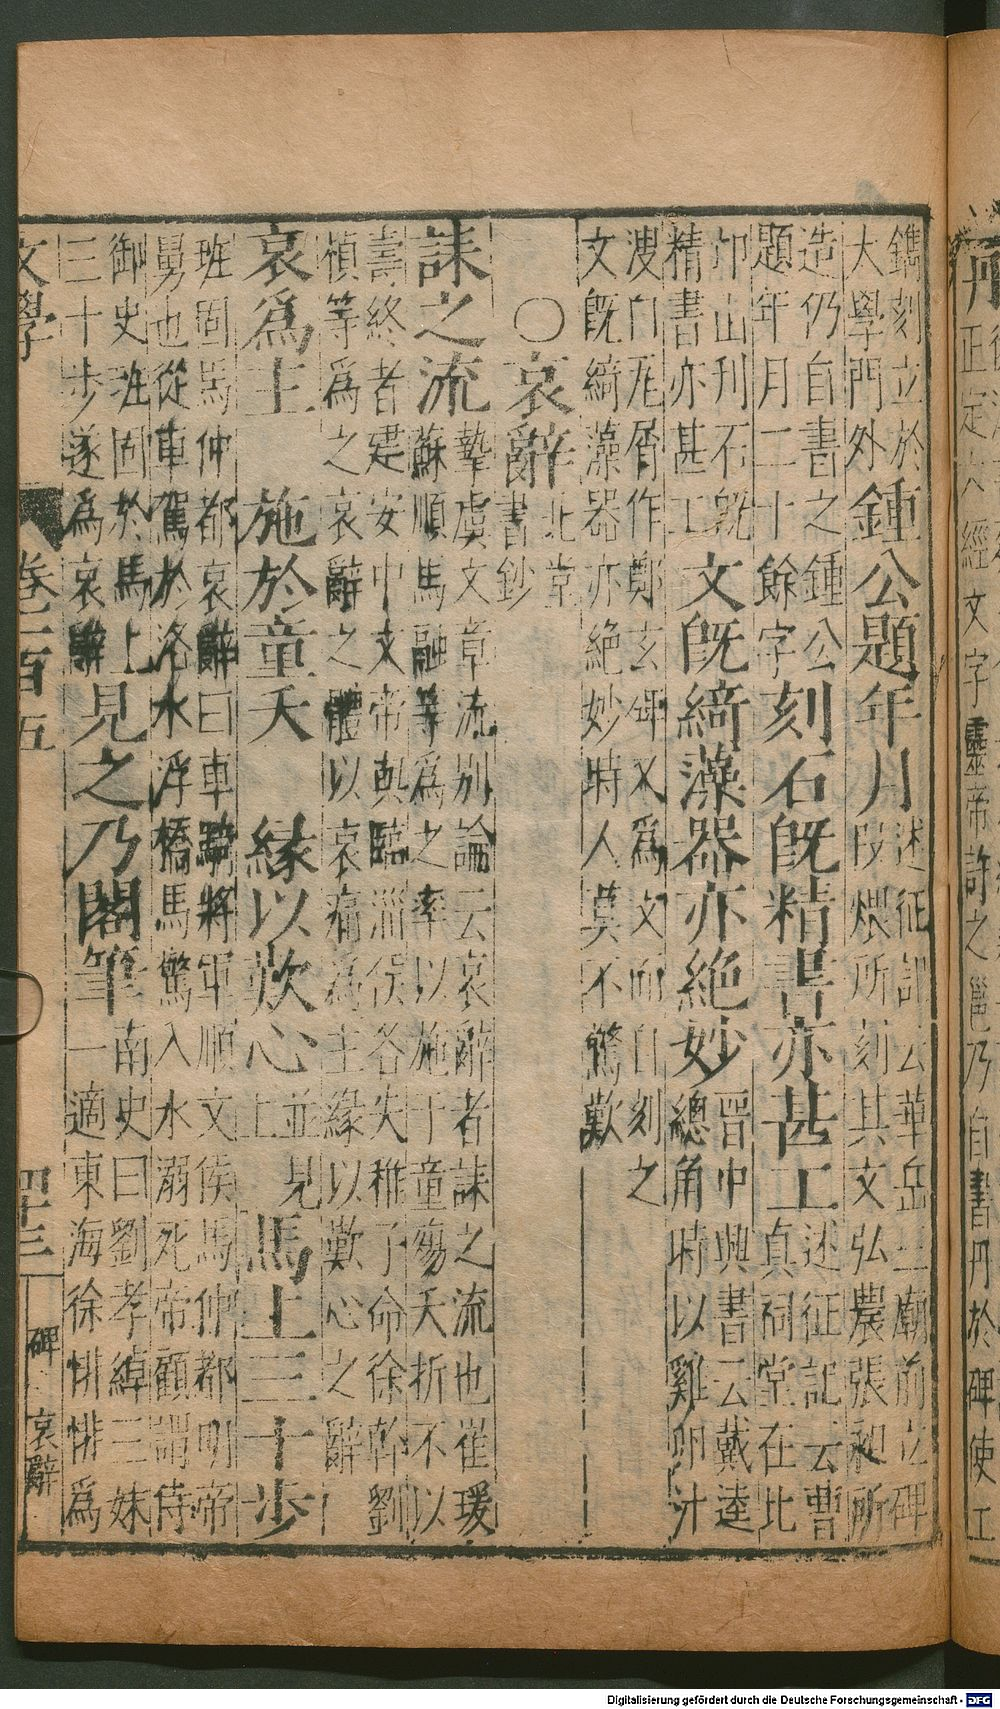 丹正定六經文字靈帝許之邕乃自書丹於碑使工
鐫刻立於
大學門外
鍾公題年月
述征記云華岳三廟前立碑
段煨所刻其文弘農張昶所
造仍自書之鍾公
題年月二十餘字
刻石旣精書亦甚工
述征記云曹
真祠堂在北
邙山刋石旣
精書亦甚工
文旣綺藻器亦絕妙
晉中興書云戴逵
總角時以雞卵汁
溲白瓦屑作鄭玄碑又爲文而自刻之
文旣綺藻器亦絕妙時人莫不驚歎
○哀辭
北堂
書鈔
誄之流
摯虞文章流别論云哀辭者誄之流也崔瑗
蘇順馬融等爲之率以施于童殤夭折不以
壽終者建安中文帝與臨淄侯各失稚子命徐幹劉
楨等爲之哀辭之體以哀痛爲主緣以歎心之辭
哀爲主 施於童夭 緣以歎心
並見
上
馬上三十步
班固馬仲都哀辭曰車騎將軍順文侯馬仲都明帝
舅也從車駕於洛水浮橋馬驚入水溺死帝顧謂侍
御史班固於馬上
三十步遂爲哀辭
見之乃閣筆
南史曰劉孝綽三妹
一適東海徐悱悱爲
文學 卷一百五 四十三 碑 哀辭
Digitalisierung gefördert durch die Deutsche Forschungsgemeinschaft - DFG